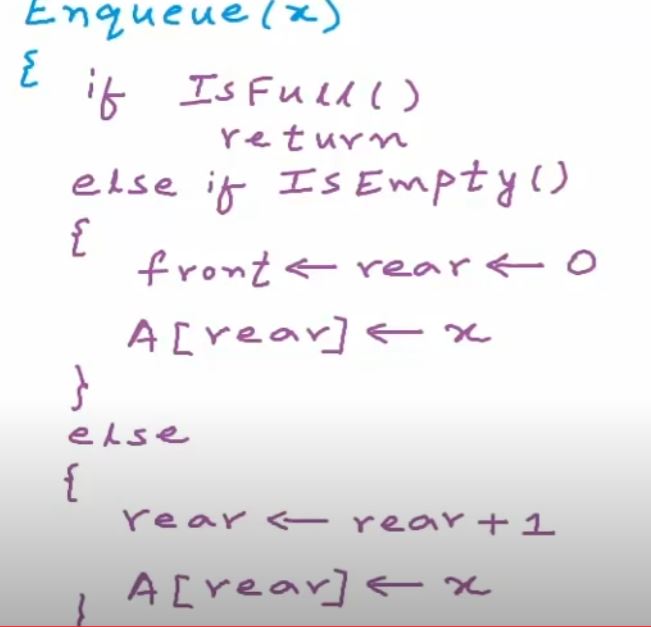 Enqueue(x)
{ if IsFull()
return
else if IsEmpty()
{
front ← rear ← 0
A[rear] ← x
}
else
{
rear ← rear + 1
A[rear] ← x
}